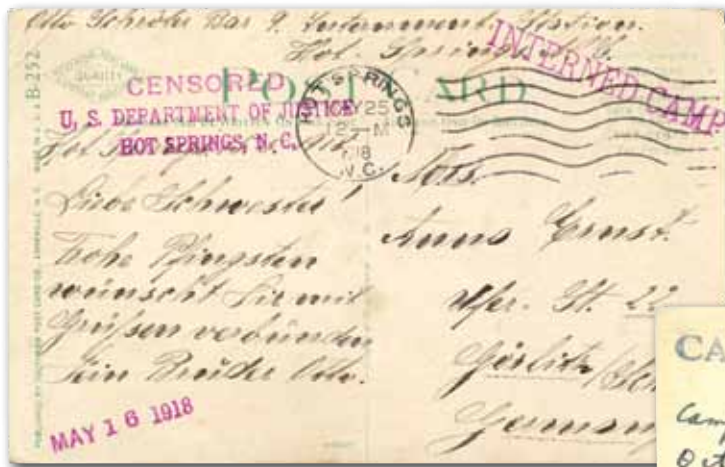 Otto Schröhr Bar 9. Internment Station.
Hot Springs N.C.
INTERNED CAMP
POST CARD
CENSORED
U. S. DEPARTMENT OF JUSTICE
HOT SPRINGS, N. C.
HOT SPRINGS
MAY 25
12-M
1918
N.C.
B-252
QUALITY
Hot Springs
Liebe Schwester!
Frohe Pfingsten
wünscht Dir mit
Grüßen verbunden
Dein Bruder Otto.
MAY 16 1918
Mrs.
Anna Ernst.
Ufer. St. 22
Görlitz /Sch
Germany
CA
Camp